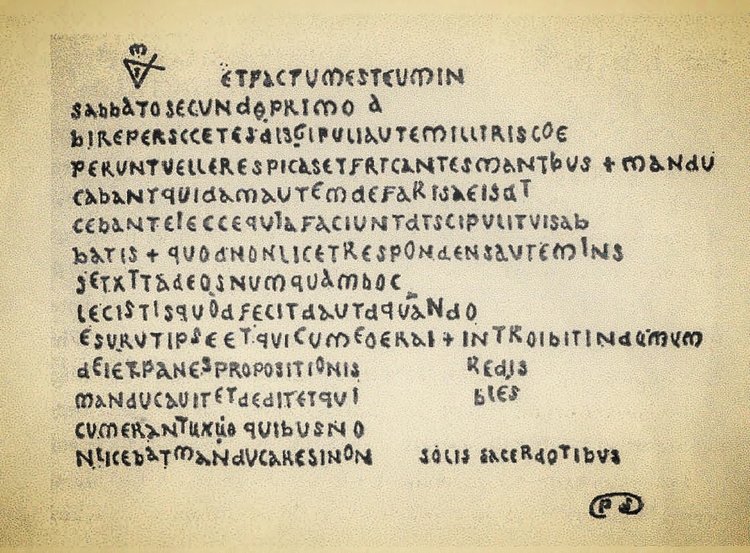 ETFACTUMESTEUMIN
SABBATOSECUNDOPRIMO A
BIREPERSCCETESDISGIPULIAUTEMILLIRISCOE
PERUNTVELLERESPICASETFRTCANTESMANTBUS + MANDU
CABANTQUIDAMAUTEMDEFARISAEISDT
CEBANTEIECCEQUIAFACIUNTDTSCIPULITVISAB
BATIS + QUODNONLICETRESPONDENSAUTEMINS
SETXTTADEOSNUMQUAMBOC
LECISTISQUODFECITDAUTDQUANDO
ESURUTIPSEETQUICUMEOERAI + INTROIBITINDUMUM
DEIETPANESPROPOSITIONIS REDIS
MANDUCAUITETDEDITETQUI BLES
CUMERANTUXUO QUIBUSNO
NLICEBATMANDUCARESINON SOLIS SACERDOTIBUS
PS